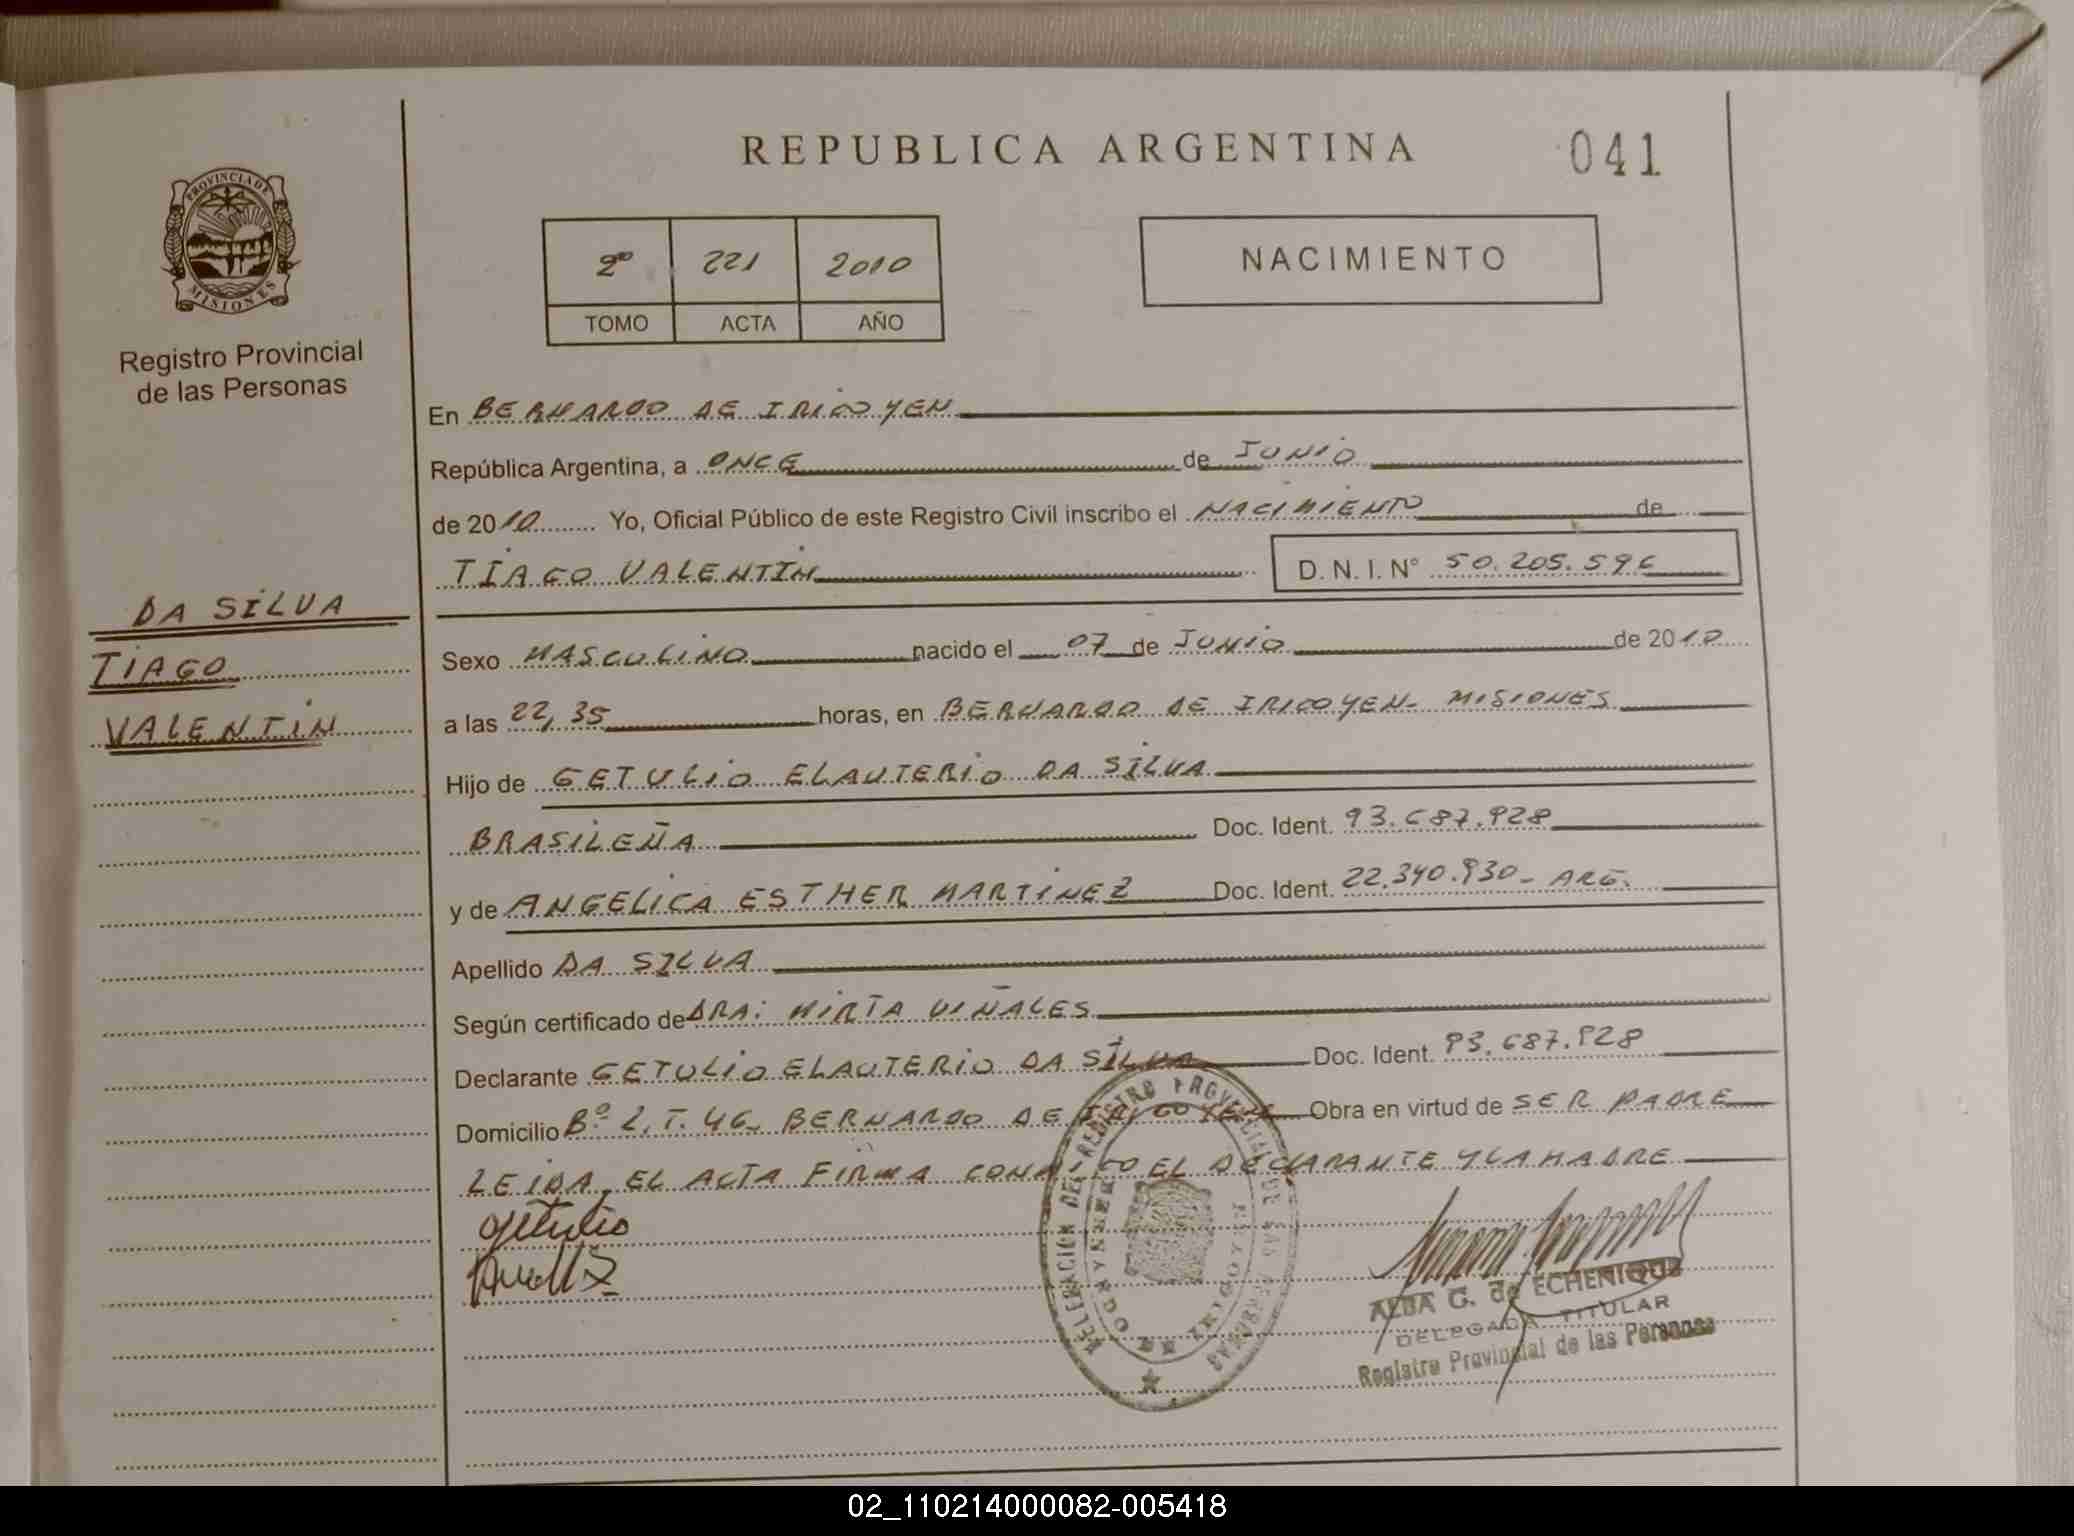 REPUBLICA ARGENTINA
041
PROVINCIA DE
MISIONES
Registro Provincial
de las Personas
2º 221 2010
TOMO ACTA AÑO
NACIMIENTO
En BERNARDO DE IRIGOYEN
República Argentina, a ONCE de JUNIO
de 2010 Yo, Oficial Público de este Registro Civil inscribo el NACIMIENTO de
TIAGO VALENTIN D. N. I. Nº 50.205.596
DA SILVA
TIAGO
VALENTIN
Sexo MASCULINO nacido el 07 de JUNIO de 2010
a las 22,35 horas, en BERNARDO DE IRIGOYEN - MISIONES
Hijo de GETULIO ELAUTERIO DA SILVA
BRASILEÑA Doc. Ident. 93.687.928
y de ANGELICA ESTHER MARTINEZ Doc. Ident. 22.340.930 - ARG.
Apellido DA SILVA
Según certificado de DRA: MIRTA VIÑALES
Declarante GETULIO ELAUTERIO DA SILVA Doc. Ident. 93.687.928
Domicilio Bº 2. T. 46. BERNARDO DE IRIGOYEN Obra en virtud de SER PADRE
LEIDA EL ACTA FIRMA CONMIGO EL DECLARANTE Y LA MADRE
getulio
DELEGACION DEL REGISTRO PROVINCIAL DE LAS PERSONAS
BERNARDO DE IRIGOYEN
ALBA G. de ECHENIQUE
DELEGADA TITULAR
Registro Provincial de las Personas
02_110214000082-005418